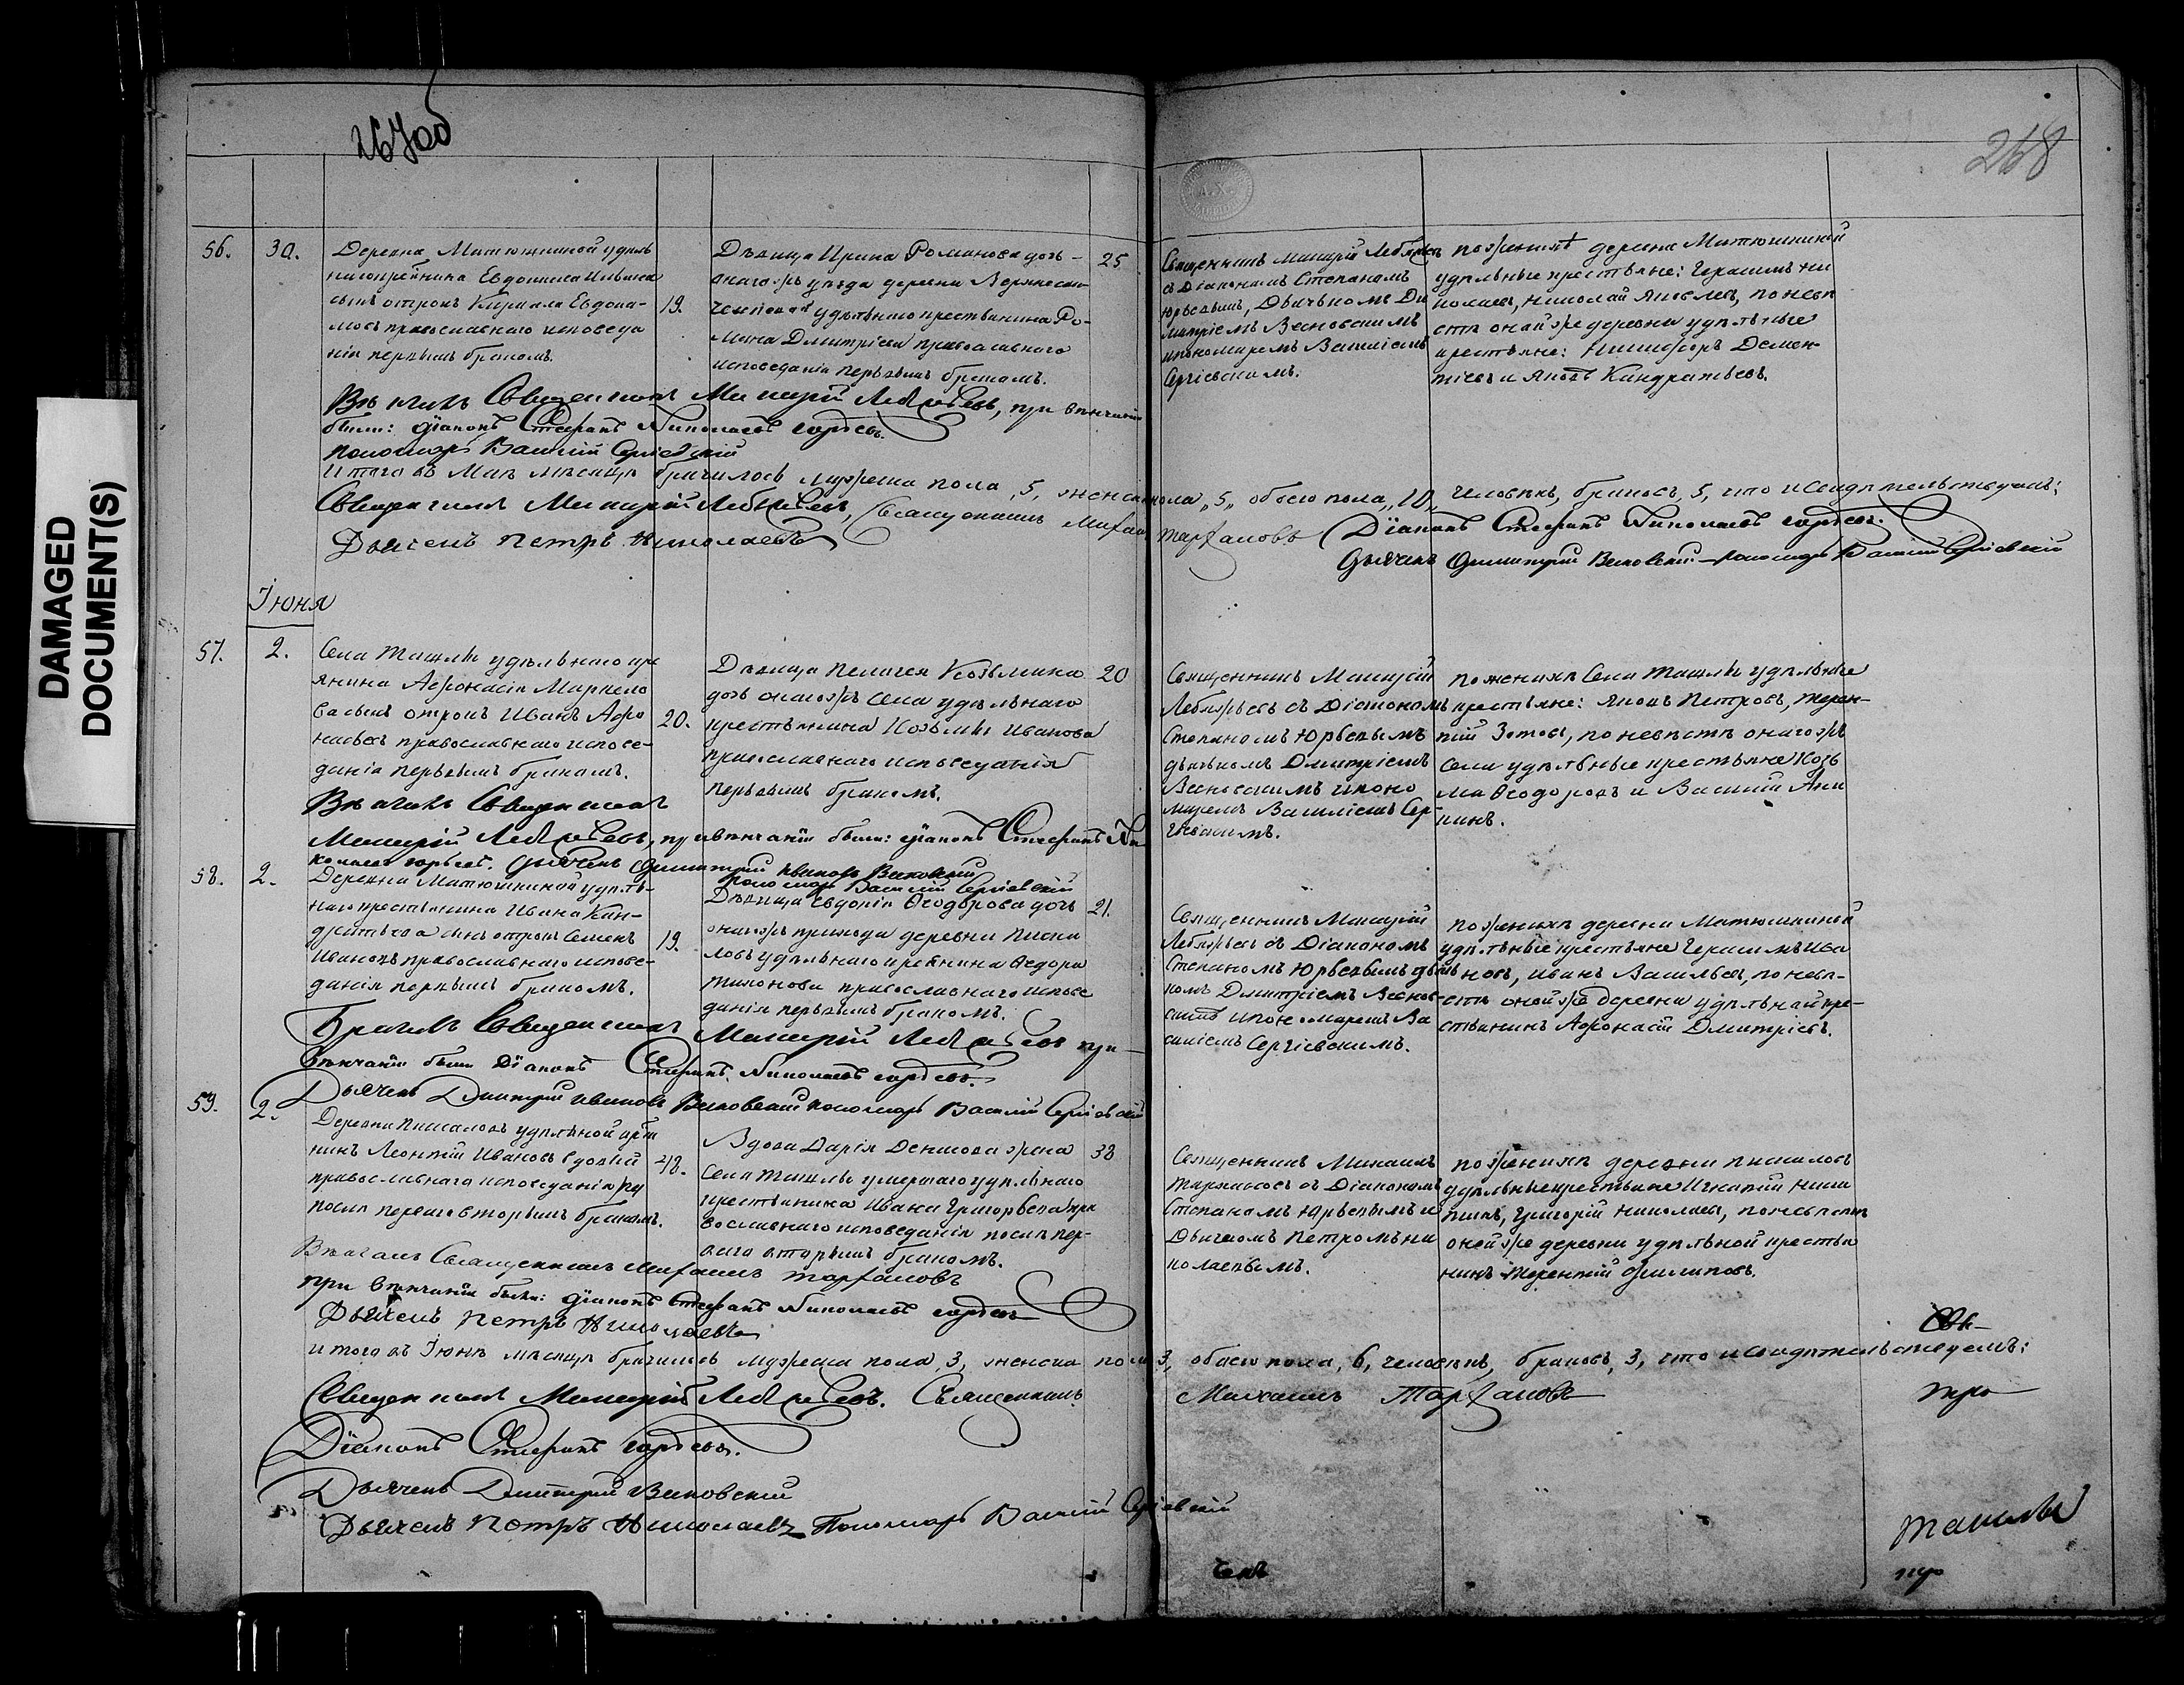 DAMAGED
DOCUMENT(S)
267об
268
56.
30.
Деревна Матюшкиной удѣль
наго крестьянина Евдокима Ильина
сынъ отрокъ Кирилла Евдоки-
мовъ православнаго исповѣда
нія первымъ бракомъ.
19.
Дѣвица Ирина Романова дочь
онагожъ уѣзда деревни
удѣльнаго крестьянина Ро-
мана Дмитріева православнаго
исповеданія первымъ бракомъ.
25
Священникъ Макарій Лебяжьевъ
съ Діакономъ Степаномъ
Юрьевымъ, Дьячкомъ Ди
митріемъ Весновскимъ
и пономаремъ Василіемъ
Сергіевскимъ.
по женихѣ деревни Матюшкиной
удѣльные крестьяне: Герасимъ Ни
колаевъ, Николай Яковлевъ, по невѣ
стѣ оной же деревни удѣльные
крестьяне: Никифоръ Демен-
тіевъ и Яковъ Кандратьевъ.
Вѣнчалъ Священникъ Макарій Лебяжьевъ, при вѣнчаніи
были: Діаконъ Стефанъ Николаевъ Юрьевъ.
Пономарь Василій Сергіевскій
Итого въ Маѣ мѣсяцѣ бракосочеталось мужеска пола, 5, женска пола, 5, обоего пола, 10, человѣкъ, браковъ, 5, что и свидѣтельствуемъ:
Священникъ Макарій Лебяжьевъ, Священникъ Михаилъ Тарханов Діаконъ Стефанъ Николаевъ Юрьевъ.
Дьячекъ Петръ Николаевъ
Дьячекъ Димитрій Весновскій Пономарь Василій Сергіевскій
Іюня
57.
2.
Села Ташлы удѣльнаго кре
янина Афонасія Маркело
ва сынъ отрокъ Иванъ Афо
насьевъ православнаго испове-
данія первымъ бракомъ.
20.
Дѣвица Пелагея Козьмина
дочь онагожъ села удѣльнаго
крестьянина Козьмы Иванова
православнаго исповеданія
первымъ бракомъ.
20
Священникъ Макарій
Лебяжьевъ съ Діакономъ
Степаномъ Юрьевымъ
дьячкомъ Дмитріемъ
Весновскимъ и поно
маремъ Василіемъ Сер
гіевскимъ.
по женихѣ Села Ташлы удѣльные
крестьяне: Яковъ Петровъ, Терен-
тій Зотовъ, по невѣстѣ онагожъ
села удѣльные крестьяне Козь
ма Феодоровъ и Василій Ани
кинъ.
Вѣнчалъ Священникъ
Макарій Лебяжьевъ, при вѣнчаніи были: Діаконъ Стефанъ Ни
колаевъ Юрьевъ. Дьячекъ Димитрій Ивановъ Весновскій
Пономарь Василій Сергіевскій
58.
2.
Деревни Матюшкиной удѣль-
наго крестьянина Ивана Кан-
дратьева сынъ отрокъ Семенъ
Ивановъ православнаго испове-
данія первымъ бракомъ.
19.
Дѣвица Евдокія Феодорова дочь
онагожъ прихода деревни Писка
ловъ удѣльнаго крестьянина Федора
Тихонова православнаго испове
данія первымъ бракомъ.
21.
Священникъ Макарій
Лебяжьевъ съ Діакономъ
Степаномъ Юрьевымъ дья
комъ Дмитріемъ Веснов-
скимъ и пономаремъ Ва
силіемъ Сергіевскимъ.
по женихѣ деревни Матюшкиной
удѣльные крестьяне Герасимъ Ива
новъ, Иванъ Васильевъ, по невѣ-
стѣ оной же деревни удѣльной кре-
стьянинъ Афонасій Дмитріевъ.
Брачилъ Священникъ Макарій Лебяжьевъ при
вѣнчаніи были Діаконъ Стефанъ Николаевъ Юрьевъ.
Дьячекъ Димитрій Ивановъ Весновскій пономарь Василій Сергіевскій
59.
2.
Деревни Пискаловъ удѣльной крестья
нинъ Леонтій Ивановъ вдовый
православнаго исповеданія
послѣ перваго вторымъ бракомъ.
48.
Вдова Дарія Денисова жена
Села Ташлы умершаго удѣльнаго
крестьянина Ивана Григорьева пра
вославнаго исповеданія послѣ пер-
ваго вторымъ бракомъ.
38
Священникъ Михаилъ
Тархановъ съ Діакономъ
Степаномъ Юрьевымъ и
Дьячкомъ Петромъ Ни
колаевымъ.
по женихѣ деревни Пискаловъ
удѣльные крестьяне Игнатій Ники
тинъ, Григорій Николаевъ, по невѣстѣ
оной же деревни удѣльной крестья
нинъ Терентій Филиповъ.
Вѣнчалъ Священникъ Михаилъ Тархановъ
при вѣнчаніи были: Діаконъ Стефанъ Николаевъ Юрьевъ
Дьячекъ Петръ Николаевъ
Итого въ Іюнѣ мѣсяцѣ бракосочеталось мужеска пола, 3, женска пола 3, обоего пола, 6, человѣкъ, браковъ, 3, что и свидѣтельствуемъ:
Священникъ Макарій Лебяжьевъ. Священникъ Михаилъ Тархановъ
Діаконъ Стефанъ Юрьевъ.
Дьячекъ Димитрій Весновскій
Дьячекъ Петръ Николаевъ Пономарь Василій Сергіевскій
Ташлы